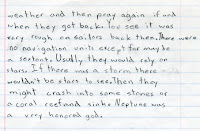 weather and then pray again if and
when they got back. You see it was
very rough on sailors back then. There were
no navigation units except for maybe
a sextant. Usually they would rely on
stars. If there was a storm there
wouldn't be stars to see. Then they
might crash into some stones or
a coral reef and sink. Neptune was
a very honored god.